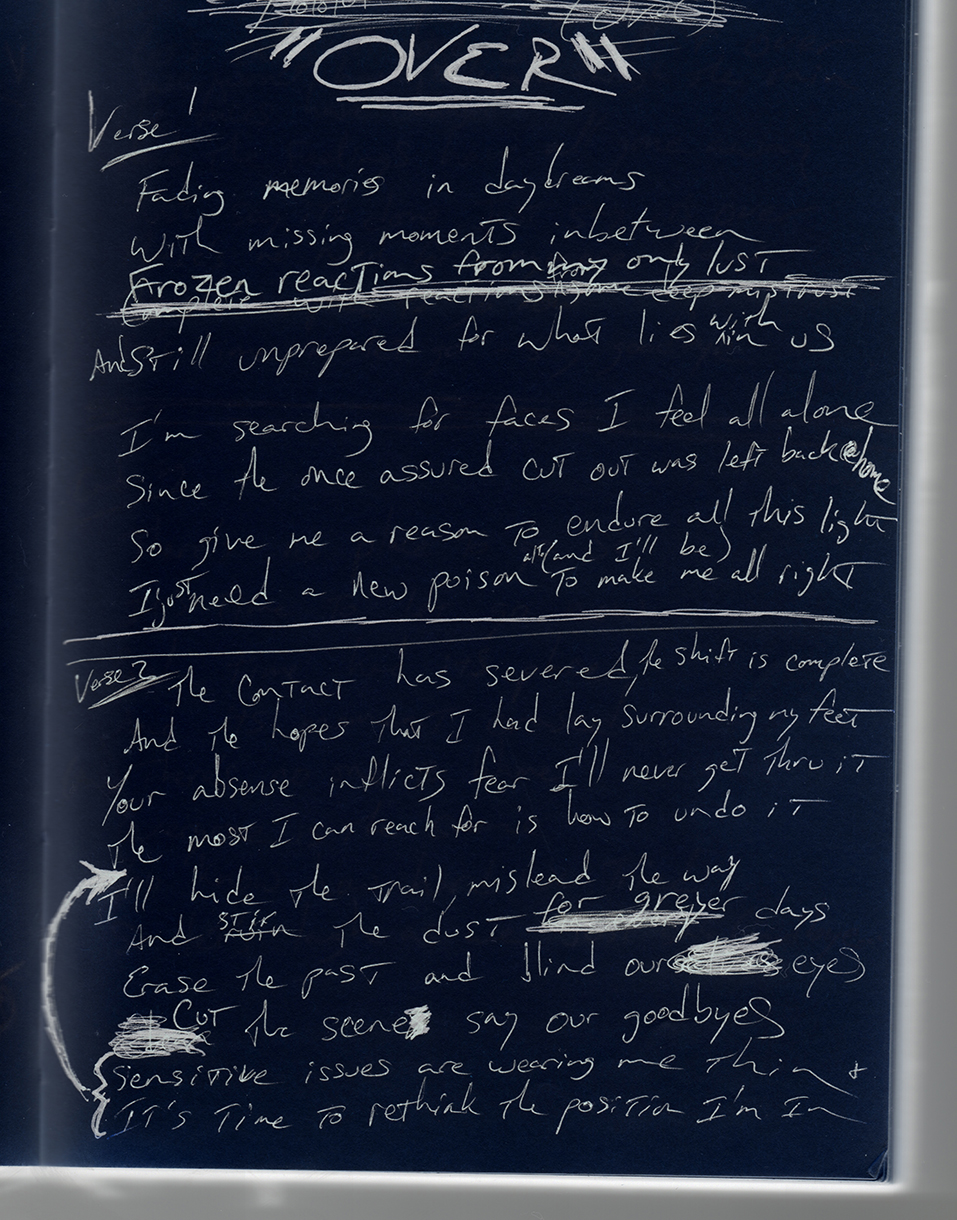 "OVER"
Verse 1
Fading memories in daydreams
With missing moments inbetween
Frozen reactions from only lust
Complete with reactions some deep mistrust
And Still unprepared for what lies with in us
I'm searching for faces I feel all alone
Since the once assured cut out was left back @ home
So give me a reason to endure all this light
(and I'll be)
I just need a new poison to make me all right
Verse 2 The contact has severed, the shift is complete
And the hopes that I had lay surrounding my feet
Your absense inflicts fear I'll never get thru it
The most I can reach for is how to undo it
I'll hide the trail, mislead the way
And stir the dust for greyer days
Erase the past and blind our eyes
Cut the scene say our goodbyes
Sensitive issues are wearing me thin +
It's time to rethink the position I'm In